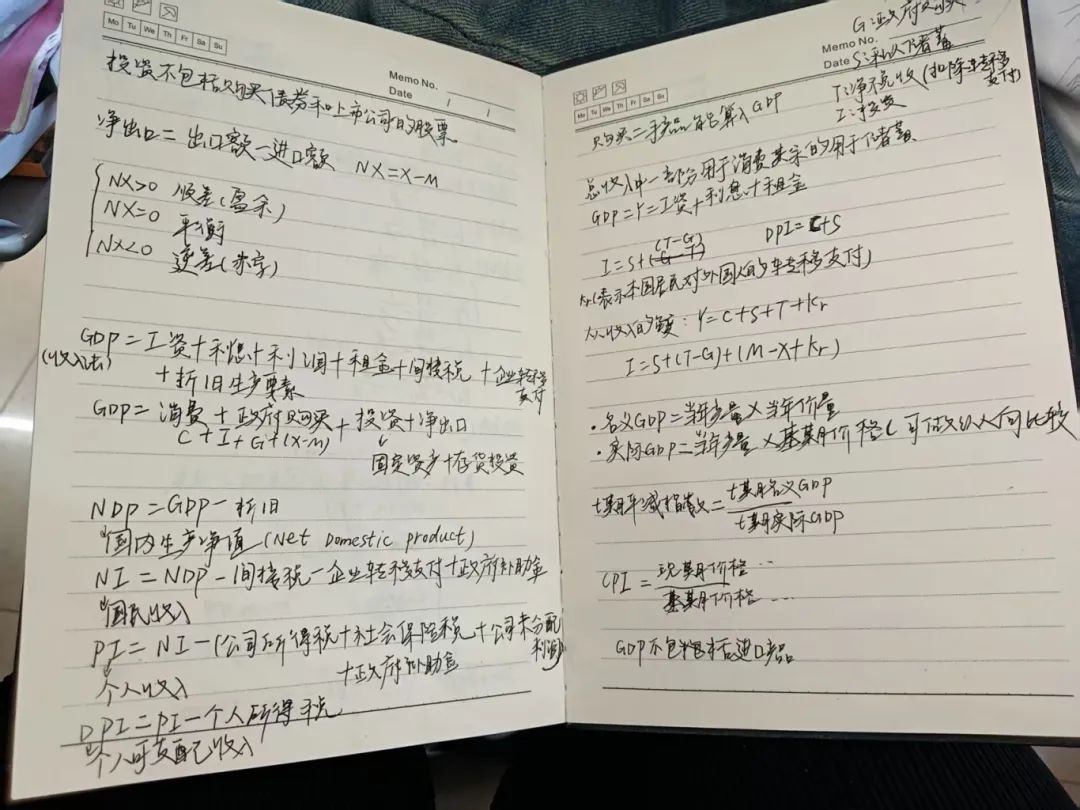 Mo Tu We Th Fr Sa Su
Memo No.
Date / /
投资不包括购买债券和上市公司的股票
净出口=出口额-进口额 NX=X-M
NX>0 顺差(盈余)
NX=0 平衡
NX<0 逆差(赤字)
GDP=工资+利息+利润+租金+间接税+企业转移支付
(收入法) +折旧生产要素
GDP=消费+政府购买+投资+净出口
C+I+G+(X-M)
固定资产+存货投资
NDP=GDP-折旧
国内生产净值(Net Domestic product)
NI=NDP-间接税-企业转移支付+政府补助金
国民收入
PI=NI-(公司所得税+社会保险税+公司未分配利润)
+政府补助金
个人收入
DPI=PI-个人所得税
个人可支配收入
G:政府购买
Memo No.
Date S:私人储蓄
T:净税收(扣除转移支付)
I:投资
Mo Tu We Th Fr Sa Su
购买二手产品不算入GDP
总收入中一部分用于消费其余的用于储蓄
GDP=Y=工资+利息+租金
(T-G) DPI=C+S
I=S+(G-T)
Kr(表示本国居民对外国人的转移支付)
从收入的角度:Y=C+S+T+Kr
I=S+(T-G)+(M-X+Kr)
·名义GDP=当年产量×当年价量
·实际GDP=当年产量×基期价格(可以纵向比较
t期平减指数=t期名义GDP
t期实际GDP
CPI=现期价格…
基期价格…
GDP不包括进口产品